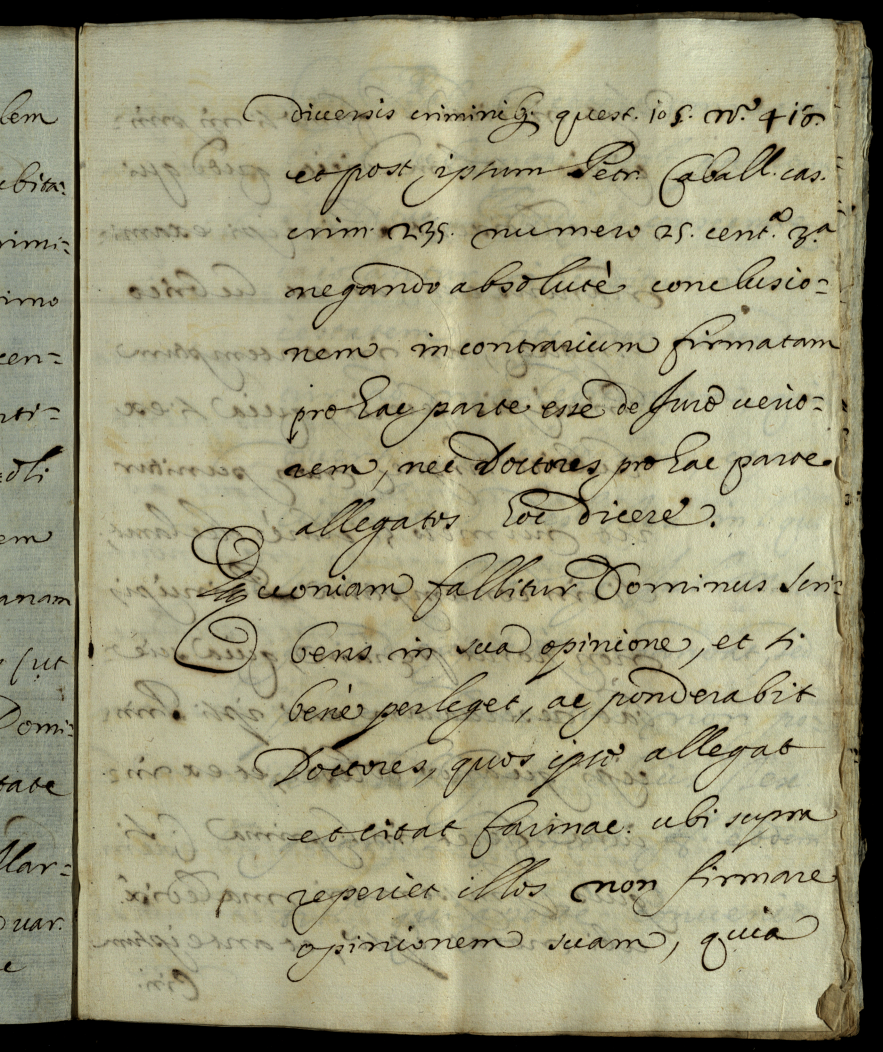 lem
ubita:
rimi=
imo
cen=
rti=
em
anam
sut
Domi=
tate
Mar=
uar.
e
diuersis criminibq. quest. 105. nº. 416.
et post ipsum Petr. Caball. cas.
crim. 235. numero 25. cent.ª 3.ª
negando absolutè conclusio=
nem in contrarium firmatam
pro hac parte esse de Jure uerio=
rem, nec Doctores pro hac parte
allegatos hoc dicere.
Quoniam fallitur Dominus scri=
bens in sua opinione, et si
benè perleget, ac ponderabit
Doctores, quos ipse allegat
et citat farinac. ubi supra
reperiet illos non firmare
opinionem suam, quia